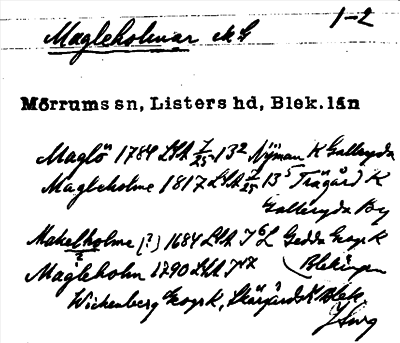 1-2
Magleholmar
Mörrums sn, Listers hd, Blek. län
Maglö 1784 LSA 13² Nyman K Galleryda
Magleholme 1817 LSA 13⁵ Trägård K
Galleryda By
Makelholme [?] 1684 LSA Gedda Geogr K
Magleholm 1790 LSA Blekingen
Wichenberg Geogr K, Skärgårds K Blek